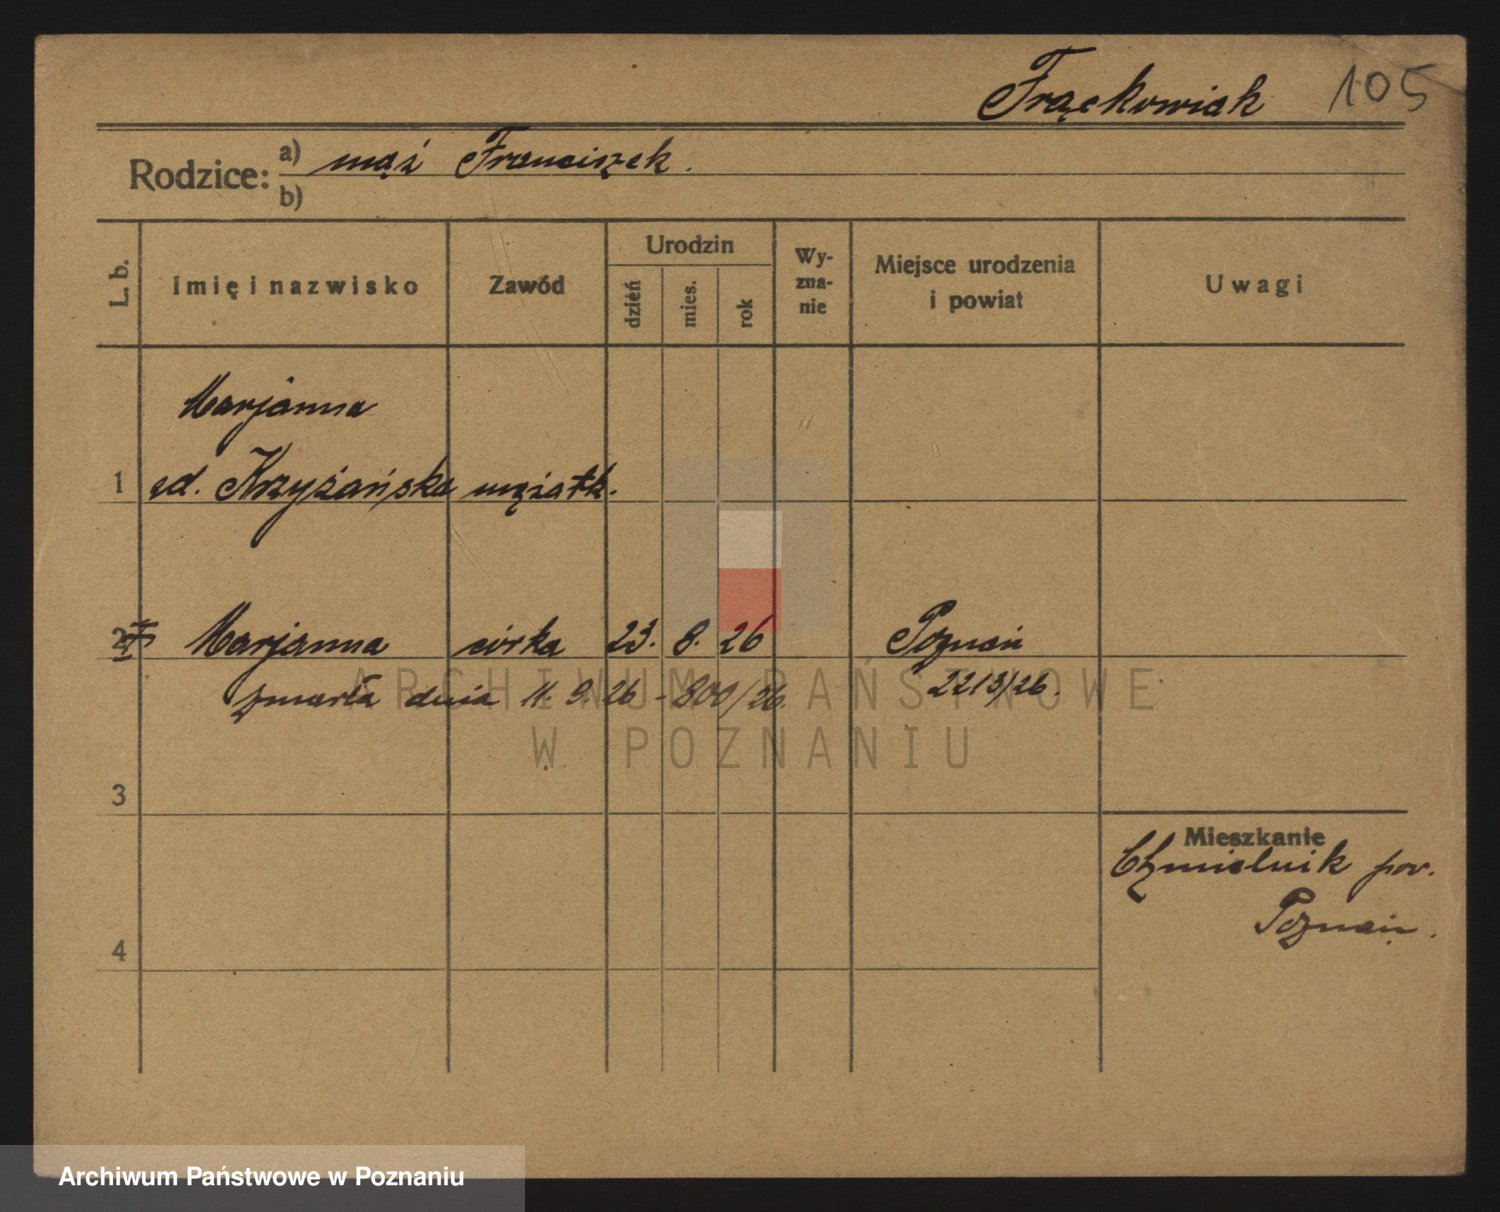 Frąckowiak 105
Rodzice: a) mąż Franciszek.
b)
L. b. Imię i nazwisko Zawód Urodzin dzień mies. rok Wyznanie Miejsce urodzenia i powiat Uwagi
Marjanna
1 zd. Krzyżańska mężatk.
2 Marjanna córka 23. 8. 26 Poznań
zmarła dnia 11. 9. 26 - 800/26. 2213/26.
ARCHIWUM PAŃSTWOWE
W POZNANIU
3
Mieszkanie
Chmielnik pow.
Poznań.
4
Archiwum Państwowe w Poznaniu